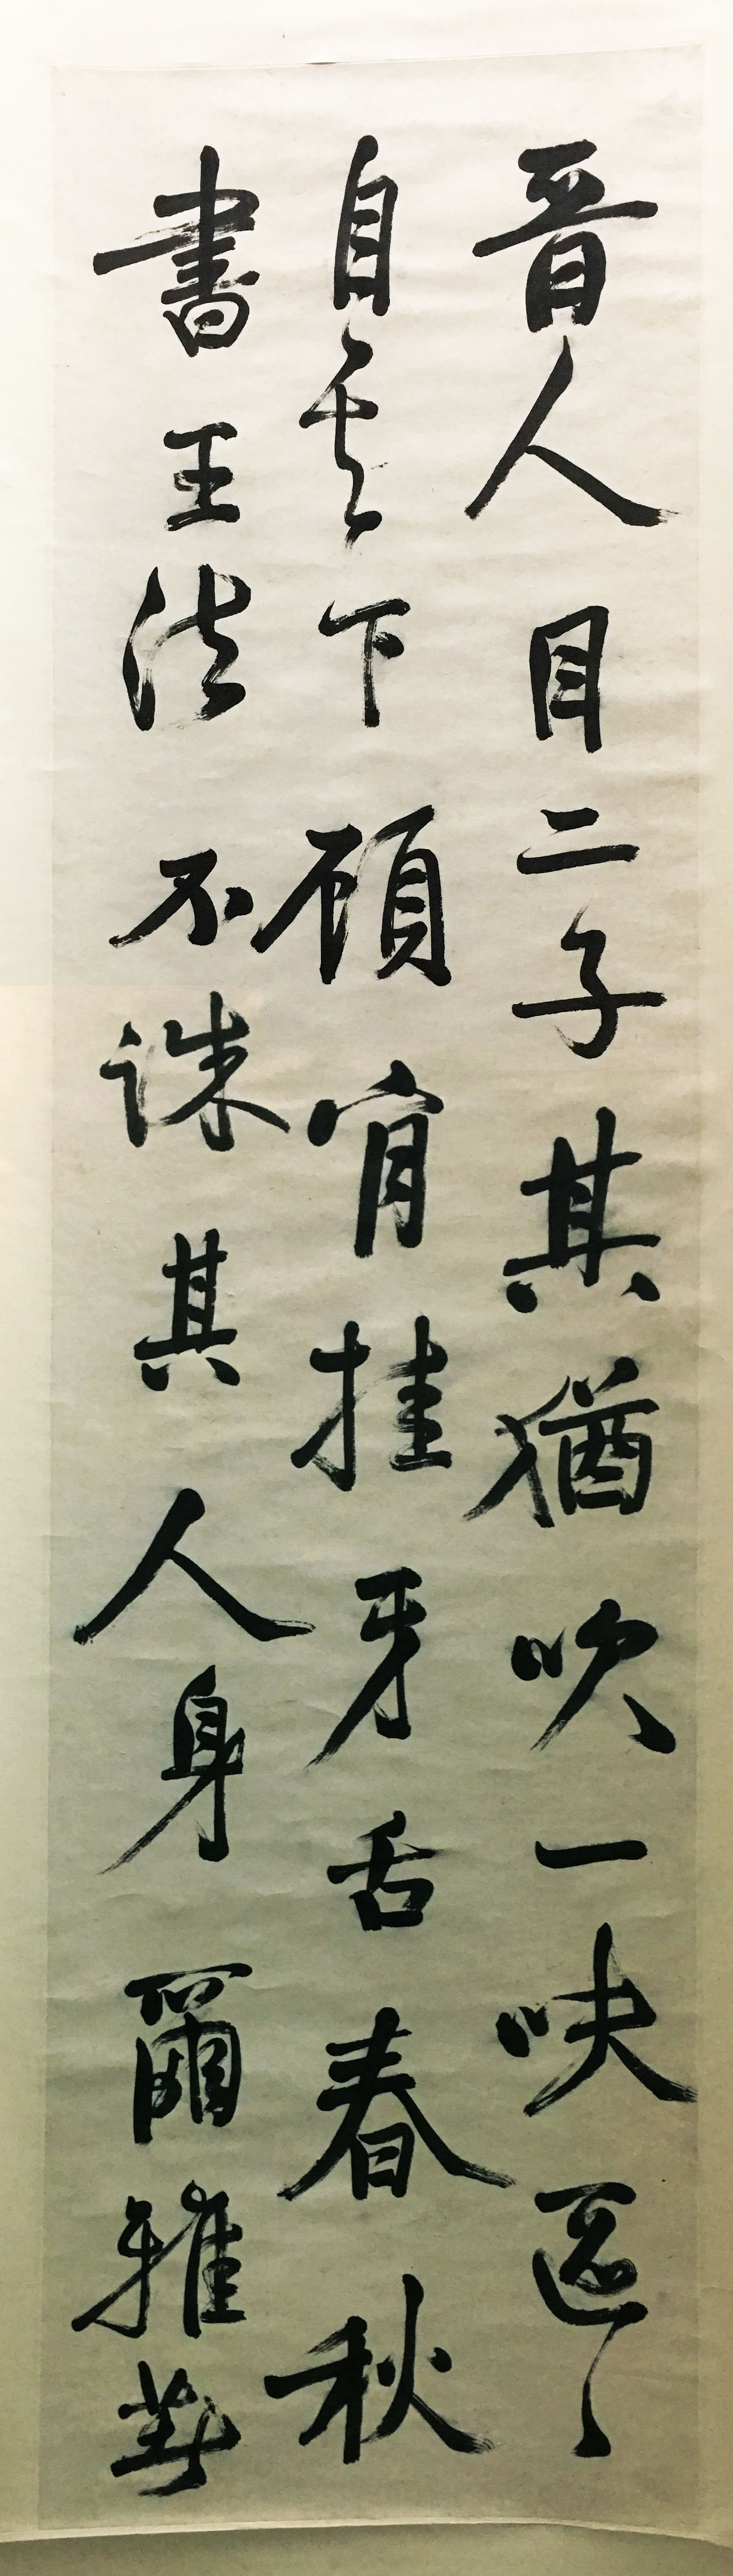 晋人目二子其猶吹一吷區〻
自其下顧肯挂牙舌春秋
書王法不誅其人身爾雅